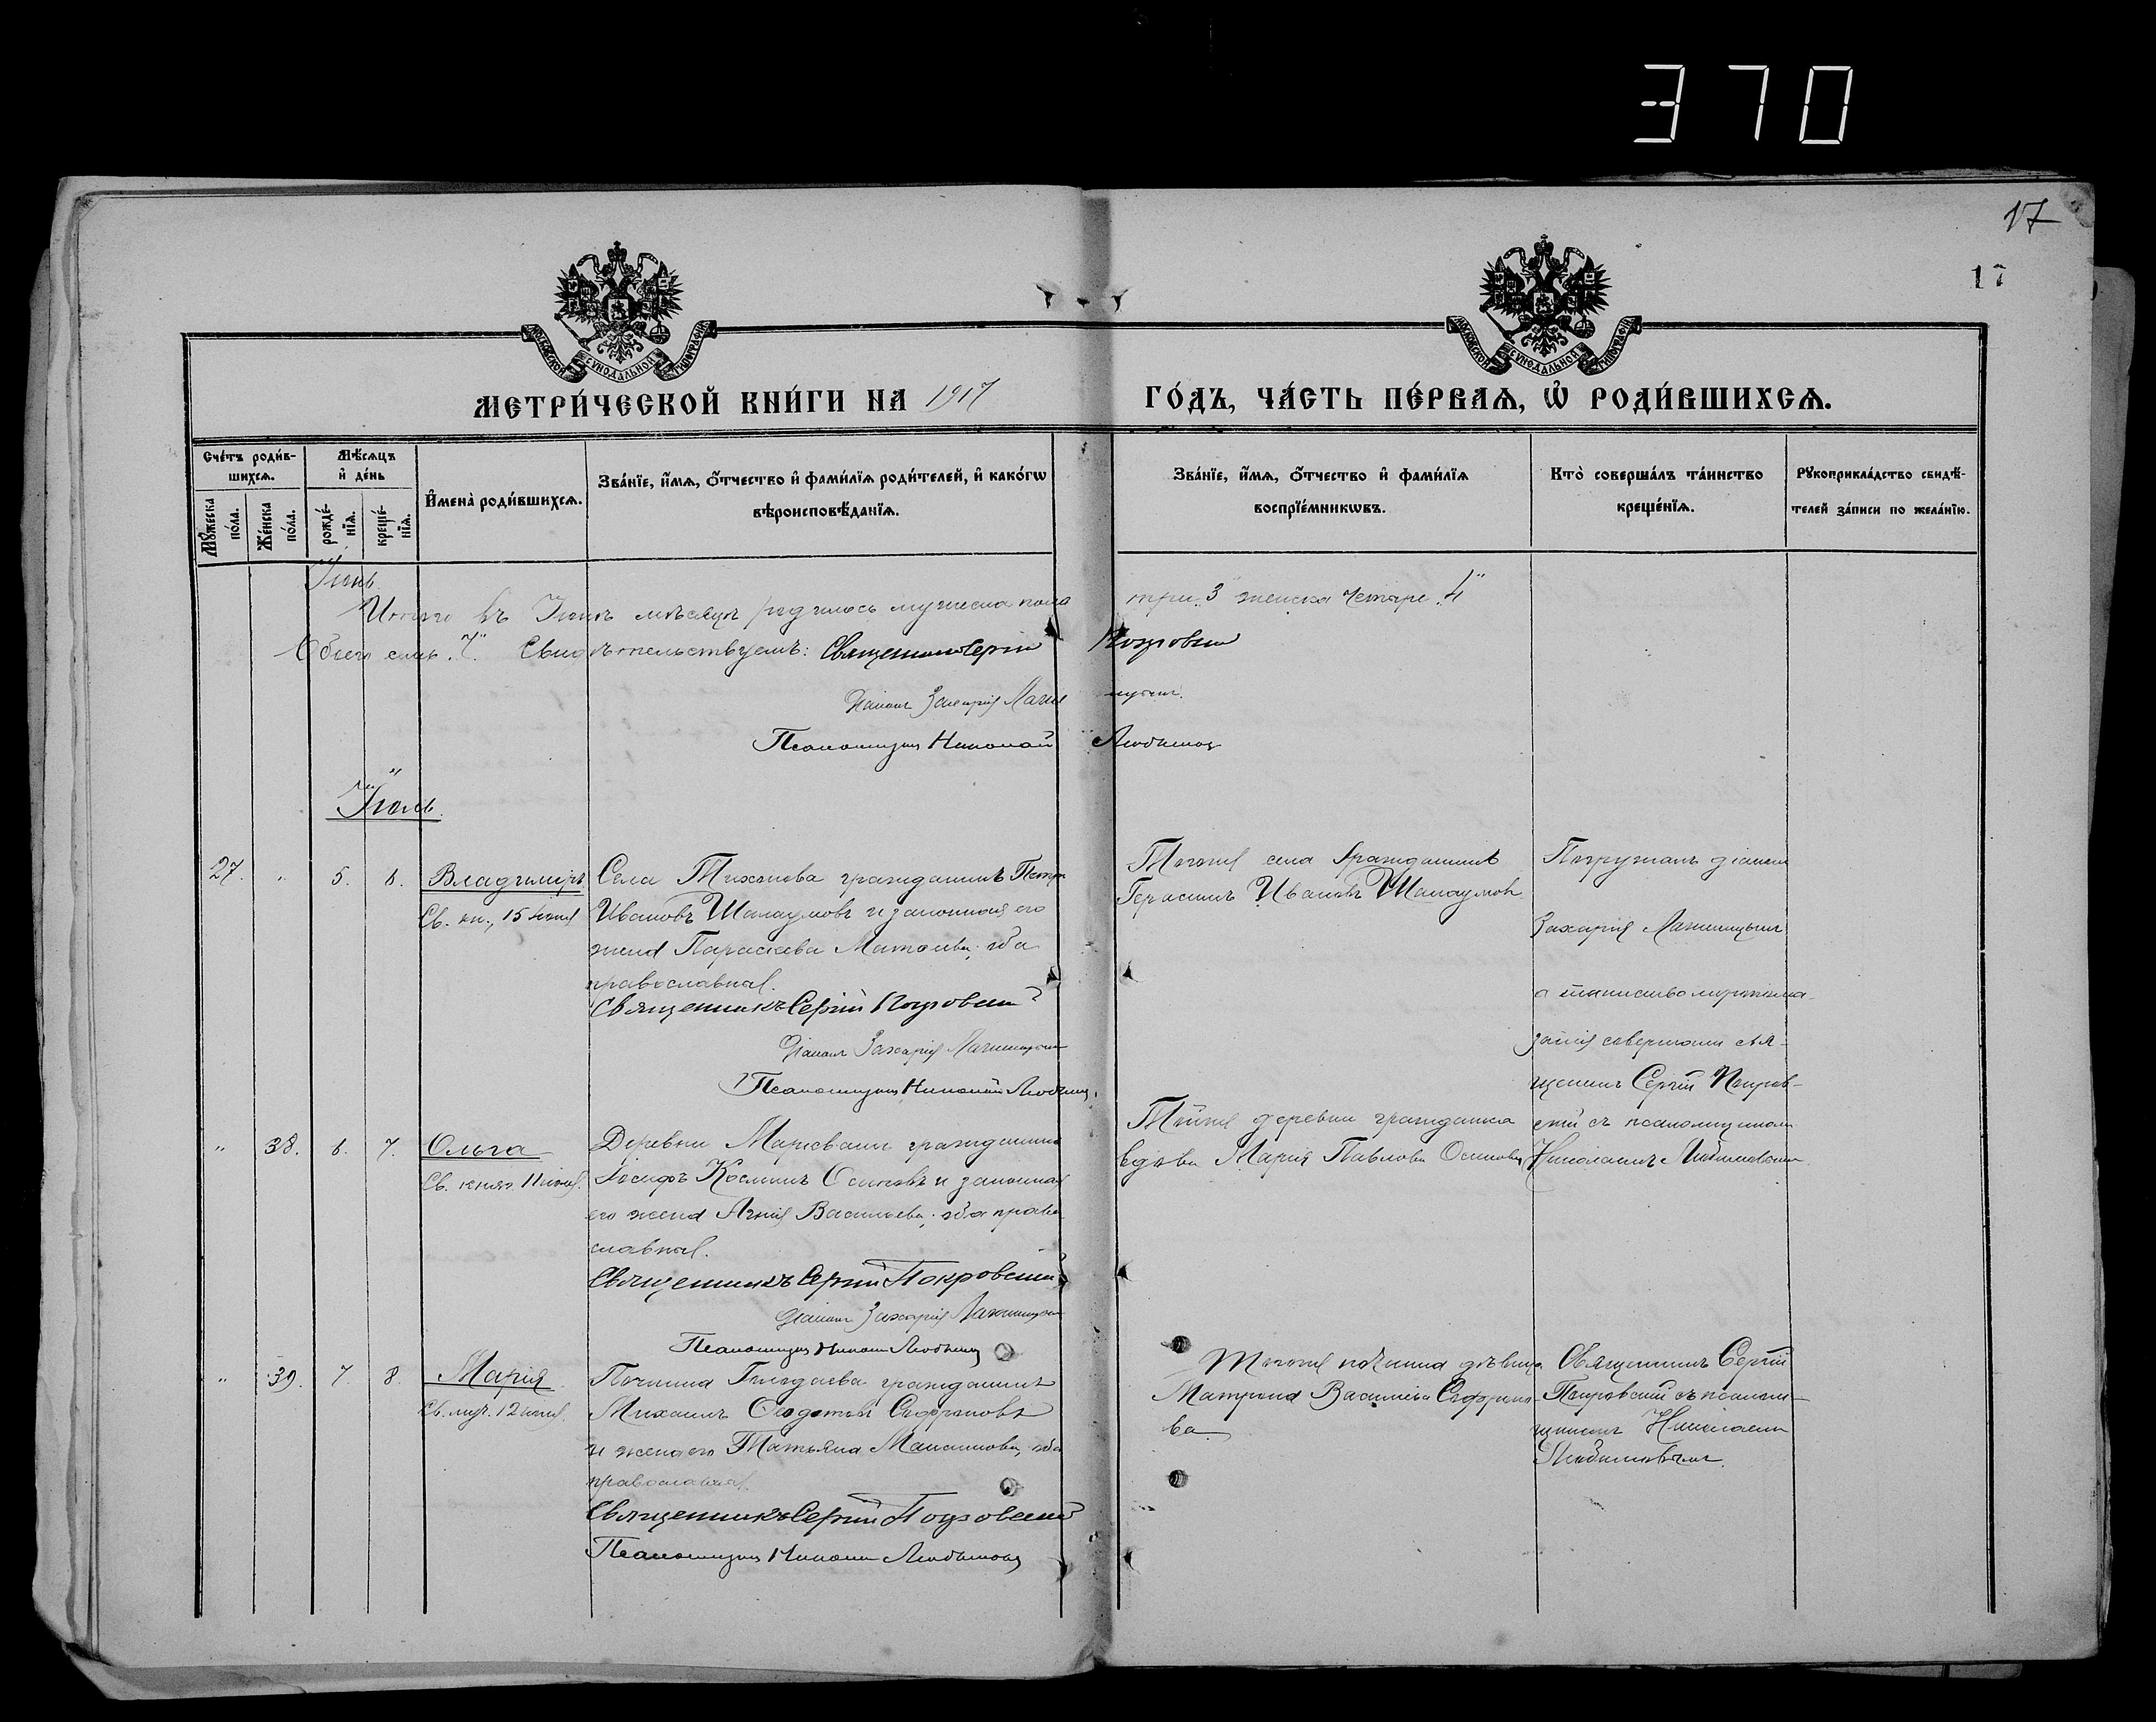 370
17
17
МОСКОВСКОЙ СУНОДАЛЬНОЙ ТИПОГРАФІИ
МОСКОВСКОЙ СУНОДАЛЬНОЙ ТИПОГРАФІИ
МЕТРИ́ЧЕСКОЙ КНИ́ГИ НА 1917 ГО́ДЪ, ЧА́СТЬ ПЕ́РВАѦ, Ѡ҆ РОДИ́ВШИХСѦ.
Сче́тъ роди́в-
шихсѧ.
Мꙋ́жеска
по́ла.
Же́нска
по́ла.
Мѣ́сѧцъ
и҆ де́нь
рожде́-
нїѧ.
креще́-
нїѧ.
И҆мена̀ роди́вшихсѧ.
Зва́нїе, и҆́мѧ, ѻ҆́тчество и҆ фами́лїѧ роди́телей, и҆ како́гѡ
вѣроисповѣ́данїѧ.
Зва́нїе, и҆́мѧ, ѻ҆́тчество и҆ фами́лїѧ
воспрїе́мникѡвъ.
Кто̀ соверша́лъ та́инство
креще́нїѧ.
Рꙋкоприкла́дство свидѣ́-
телей за́писи по жела́нїю.
Іюнь.
Итого въ Іюнѣ мѣсяцѣ родилось мужеска пола три „3“ женска четыре „4“
Обоего „7“. Свидѣтельствуемъ: Священникъ Сергій Покровскій
Діаконъ Захарія
Псаломщикъ Николай Любимовъ
Іюль.
27. „ 5. 6. Владиміръ
Св. кн., 15 іюля
Села Тиханова гражданинъ Петръ
Ивановъ Шалаумовъ и законная его
жена Параскева Матвѣева; оба
православные.
Священникъ Сергій Покровскій
Діаконъ Захарія
Псаломщикъ Николай Любимовъ
Тогоже села гражданинъ
Герасимъ Ивановъ Шалаумовъ
Погружалъ діаконъ
Захарія
а таинство муропома-
занія совершалъ свя-
щенникъ Сергій Покров-
скій съ псаломщикомъ
Николаемъ Любимовымъ
„ 38. 6. 7. Ольга
Св. княг. 11 іюля.
Деревни гражданинъ
Іосифъ Косминъ Осиповъ и законная
его жена Агнія Васильева; оба право-
славные.
Священникъ Сергій Покровскій
Діаконъ Захарія
Псаломщикъ Николай Любимовъ
Тойже деревни гражданка
вдова Марія Павлова Осипова
„ 39. 7. 8. Марія
Св. муч. 12 іюля.
Починка гражданинъ
Михаилъ Ѳедотовъ Сафроновъ
и жена его Татьяна; оба
православные.
Священникъ Сергій Покровскій
Псаломщикъ Николай Любимовъ
Тогоже починка дѣвица
Матрона Васильева Сафроно-
ва.
Священникъ Сергій
Покровскій съ псалом-
щикомъ Николаемъ
Любимовымъ.